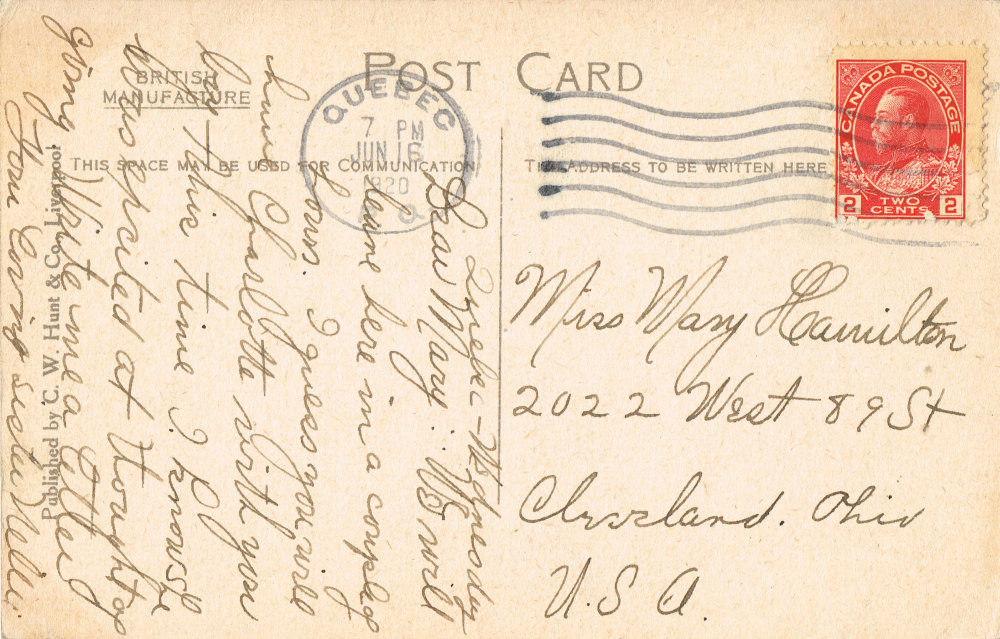 POST CARD
BRITISH
MANUFACTURE
THIS SPACE MAY BE USED FOR COMMUNICATION
THE ADDRESS TO BE WRITTEN HERE
QUEBEC
7 PM
JUN 16
1920
CANADA POSTAGE
2 TWO CENTS 2
Published by C. W. Hunt & Co., Liverpool
Quebec - Wednesday
Dear Mary: We will
leave here in a couple of
hours. I guess you will
have Charlotte with you
by this time. I know
was excited at thought of
going. Write me a letter
Your loving sister Nell.
Miss Mary Hamilton
2022 West 89 St
Cleveland. Ohio
U.S.A.